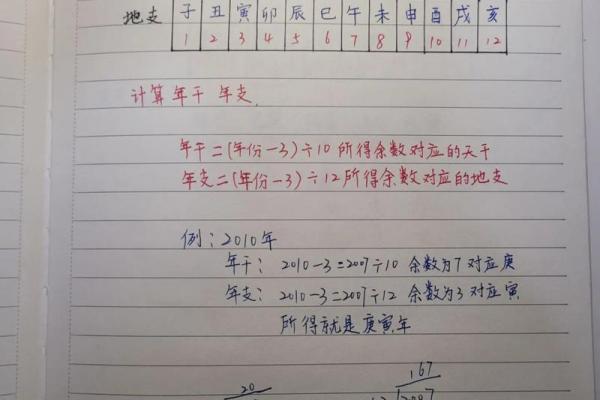 地支 子 丑 寅 卯 辰 巳 午 未 申 酉 戌 亥
1 2 3 4 5 6 7 8 9 10 11 12
计算年干 年支.
年干=(年份-3)÷10 所得余数对应的天干
年支=(年份-3)÷12 所得余数对应的地支
例：2010年
年干： 2010-3=2007÷10 余数为7 对应庚
年支： 2010-3=2007÷12 余数为3 对应寅
所得就是庚寅年
167
20
12 2007